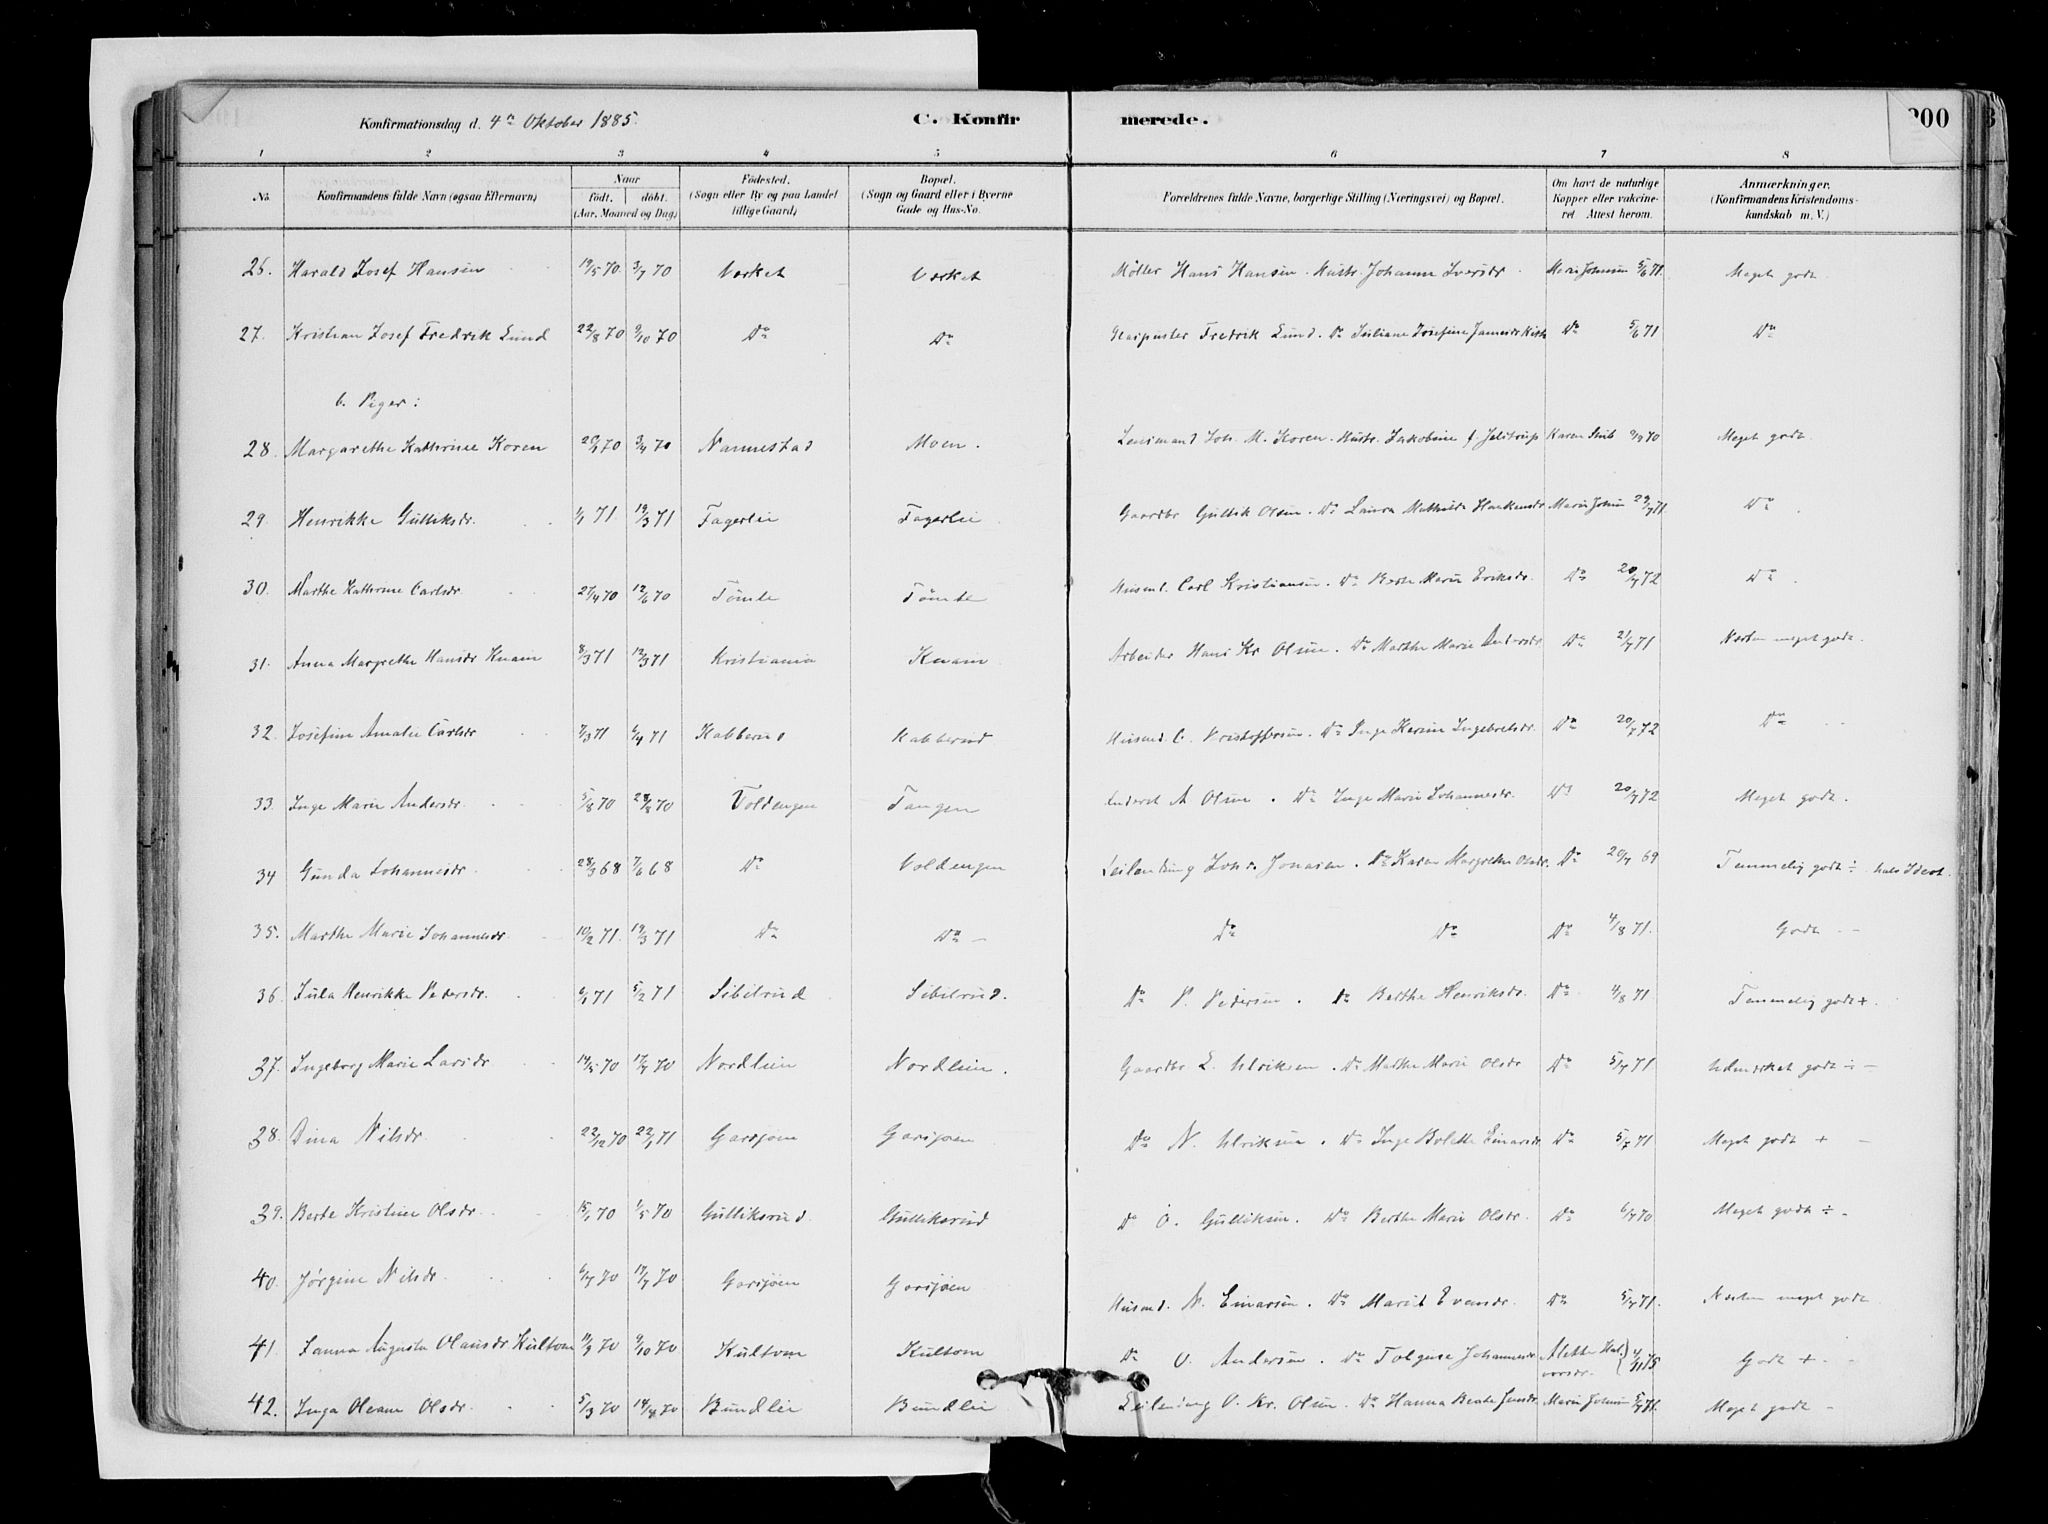 Konfirmationsdag d. 4de Oktober 1885. C. Konfirmerede. 200
1 2 3 4 5 6 7 8
No. Konfirmandens fulde Navn (ogsaa Efternavn) Naar født. døbt. (Aar, Maaned og Dag) Fødested. (Sogn eller By og paa Landet tillige Gaard) Bopæl. (Sogn og Gaard eller i Byerne Gade og Hus-No. Forældrenes fulde Navne, borgerlige Stilling (Næringsvei) og Bopæl. Om havt de naturlige Kopper eller vakcineret Attest herom. Anmærkninger. (Konfirmandens Kristendomskundskab m. V.)
26. Harald Josef Hansen 19/5 70 3/7 70 Værket Værket Möller Hans Hansen. Hustr. Johanne Iversdr. Marie Johnsen 5/6 71 Meget godt
27. Kristian Josef Fredrik Lund 22/8 70 9/10 70 Do Do Fredrik Lund. Do Juliane Josefine Do 5/6 71 Do
b. Piger:
28. Margarethe Kathrine Koren 3/4 70 Nannestad Moen. Lensmand Joh. M. Koren. Hustr. Jakobine f. Jelstrup Karen 70 Meget godt.
29. Henrikke Gulliksdr. 1/1 71 19/3 71 Fagerlie Fagerlie Gaardbr Gullik Olsen. Do Laura Mathilde Haakensdr Marie Johnsen 29/7 71 Do
30. Marthe Kathrine Carlsdr. 27/4 70 12/6 70 Tömte Tömte Husmd. Carl Kristiansen. Do Berte Marie Eriksdr. Do 20/7 72 Do
31. Anna Margrethe Hansdr Knain 8/3 71 12/3 71 Kristiania Knain Arbeider Hans Kr Olsen. Do Marthe Marie Andersdr Do 21/7 71 Næsten meget godt.
32. Josefine Amalie Carlsdr 7/3 71 6/4 71 Kabberud Kabberud Husmd. C. Kristoffersen. Do Inge Karine Ingebretsdr. Do 20/7 72 Do
33. Inge Marie Andersdr. 5/8 70 28/8 70 Voldengen Tangen Inderst A Olsen. Do Inge Marie Johannesdr. Do 20/7 72 Meget godt.
34 Gunda Johannesdr. 28/3 68 7/6 68 Do Voldengen Leilending Johs. Jonasen. Do Karen Margrethe Olsdr. Do 20/7 69 Temmelig godt ÷ halv Idiot.
35. Marthe Marie Johannesdr. 10/2 71. 19/3 71 Do Do Do Do Do 4/8 71. Godt
36. Jula Henrikke Pedersdr. 6/1 71 5/2 71 Sibilrud Sibilrud. Do P. Pedersen. Do Berthe Henriksdr. Do 4/8 71 Temmelig godt +
37. Ingeborg Marie Larsdr. 19/5 70 17/7 70 Nordlien Nordlien. Gaardbr L. Ulriksen. Do Marthe Marie Olsdr Do 5/7 71 Udmærket godt ÷
38. Dina Nilsdr. 22/12 70 22/1 71 Garsjøen Garsjøen Do N. Ulriksen. Do Inge Bolette Einarsdr Do 5/7 71 Meget godt +
39. Berte Kristine Olsdr. 15/1 70 1/5 70 Gulliksrud. Gulliksrud Do O. Gulliksen. Do Berthe Marie Olsdr. Do 6/7 70 Meget godt ÷
40. Jørgine Nilsdr. 6/7 70 17/7 70 Garsjøen Garsjøen Husmd. N. Einarsen. Do Marit Evensdr. Do 5/7 71. Næsten meget godt
41. Janna Augusta Olausdr Kultom 11/9 70 9/10 70 Kultom Kultom Do O. Andersen. Do Tolgine Johannesdr Alette Halvorsdr. 4/11 75 Godt +
42. Inga Oleane Olsdr. 5/3 70 18/4 70 Bundlie Bundlie Leilending O. Kr. Olsen. Do Hanna Berte Jensdr. Marie Johnsen 5/7 71. Meget godt